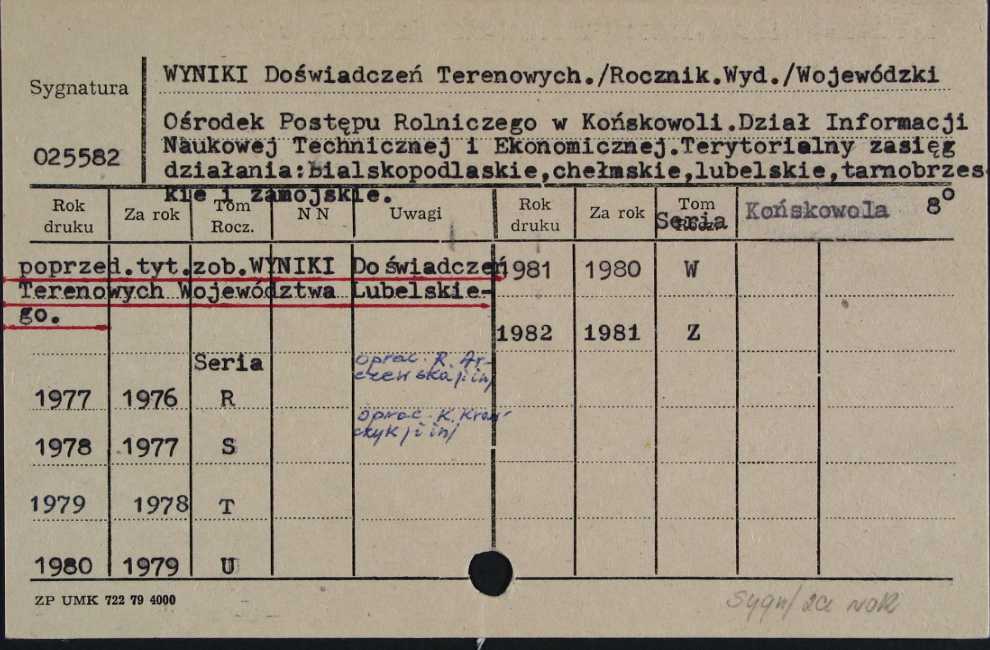 WYNIKI Doświadczeń Terenowych./Rocznik.Wyd./Wojewódzki
Sygnatura
Ośrodek Postępu Rolniczego w Końskowoli.Dział Informacji
Naukowej Technicznej i Ekonomicznej.Terytorialny zasięg
025582
działania:bialskopodlaskie,chełmskie,lubelskie,tarnobrzes-
kie i zamojskie.
Rok druku Za rok Tom Rocz. N N Uwagi Rok druku Za rok Tom Rocz. Seria Końskowola 8°
poprzed.tyt.zob.WYNIKI Doświadczeń 1981 1980 W
Terenowych Województwa Lubelskie-
go.
1982 1981 Z
Seria oprac. R. Ar-
czewska i in
1977 1976 R
oprac. K.
czyk i in
1978 1977 S
1979 1978 T
1980 1979 U
ZP UMK 722 79 4000
Sygn/ za rok